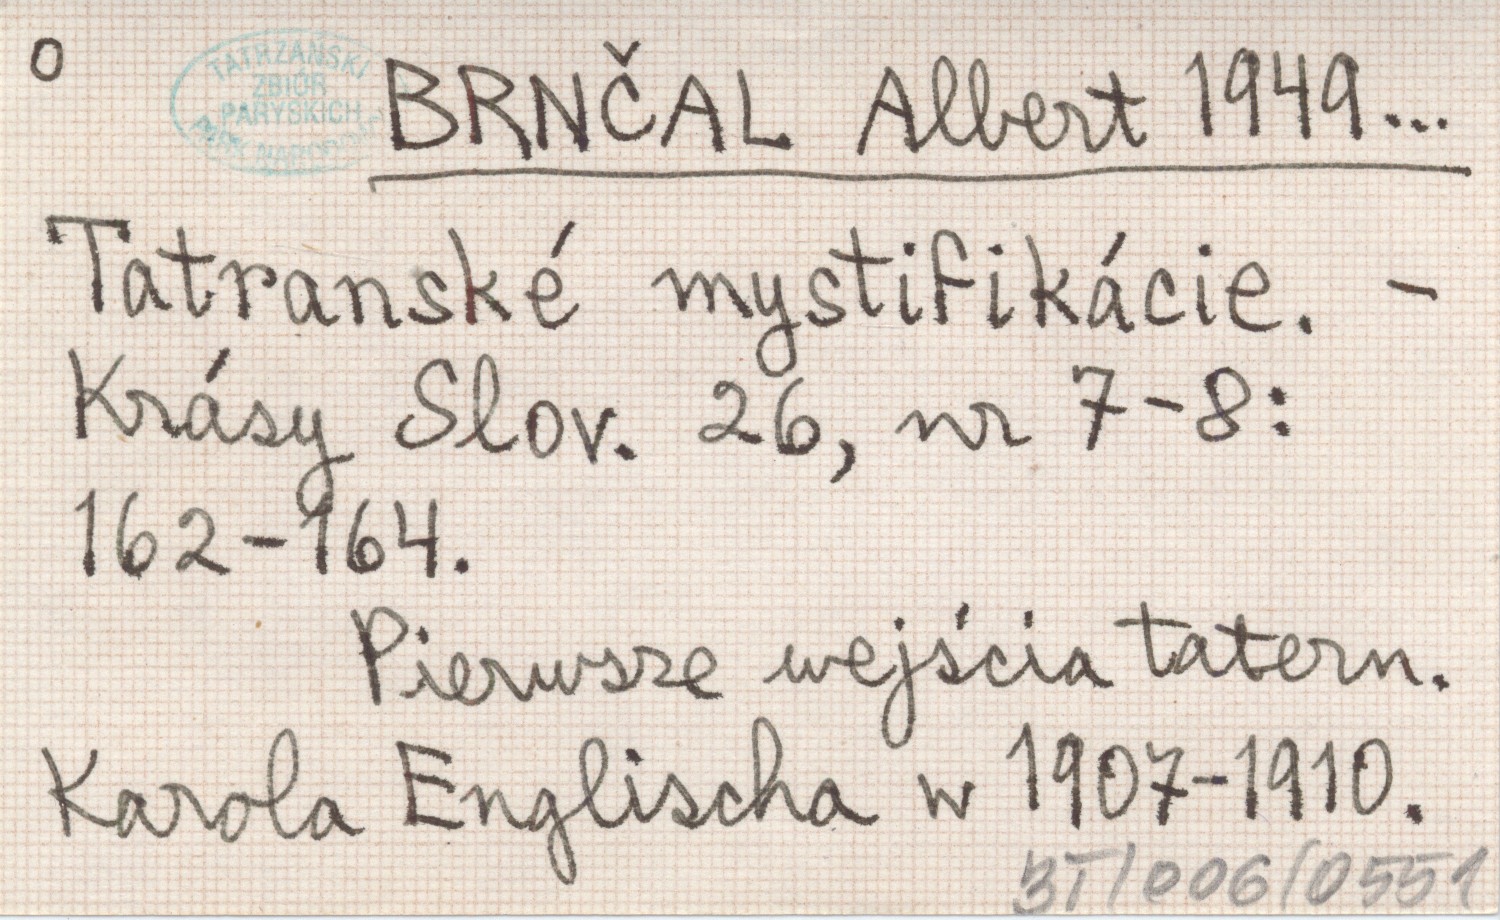 o
TATRZAŃSKI
ZBIÓR
PARYSKICH
PARK NARODOWY
BRNČAL Albert 1949...
Tatranské mystifikácie. –
Krásy Slov. 26, nr 7-8:
162-164.
Pierwsze wejścia tatern.
Karola Englischa w 1907-1910.
BT/006/0551